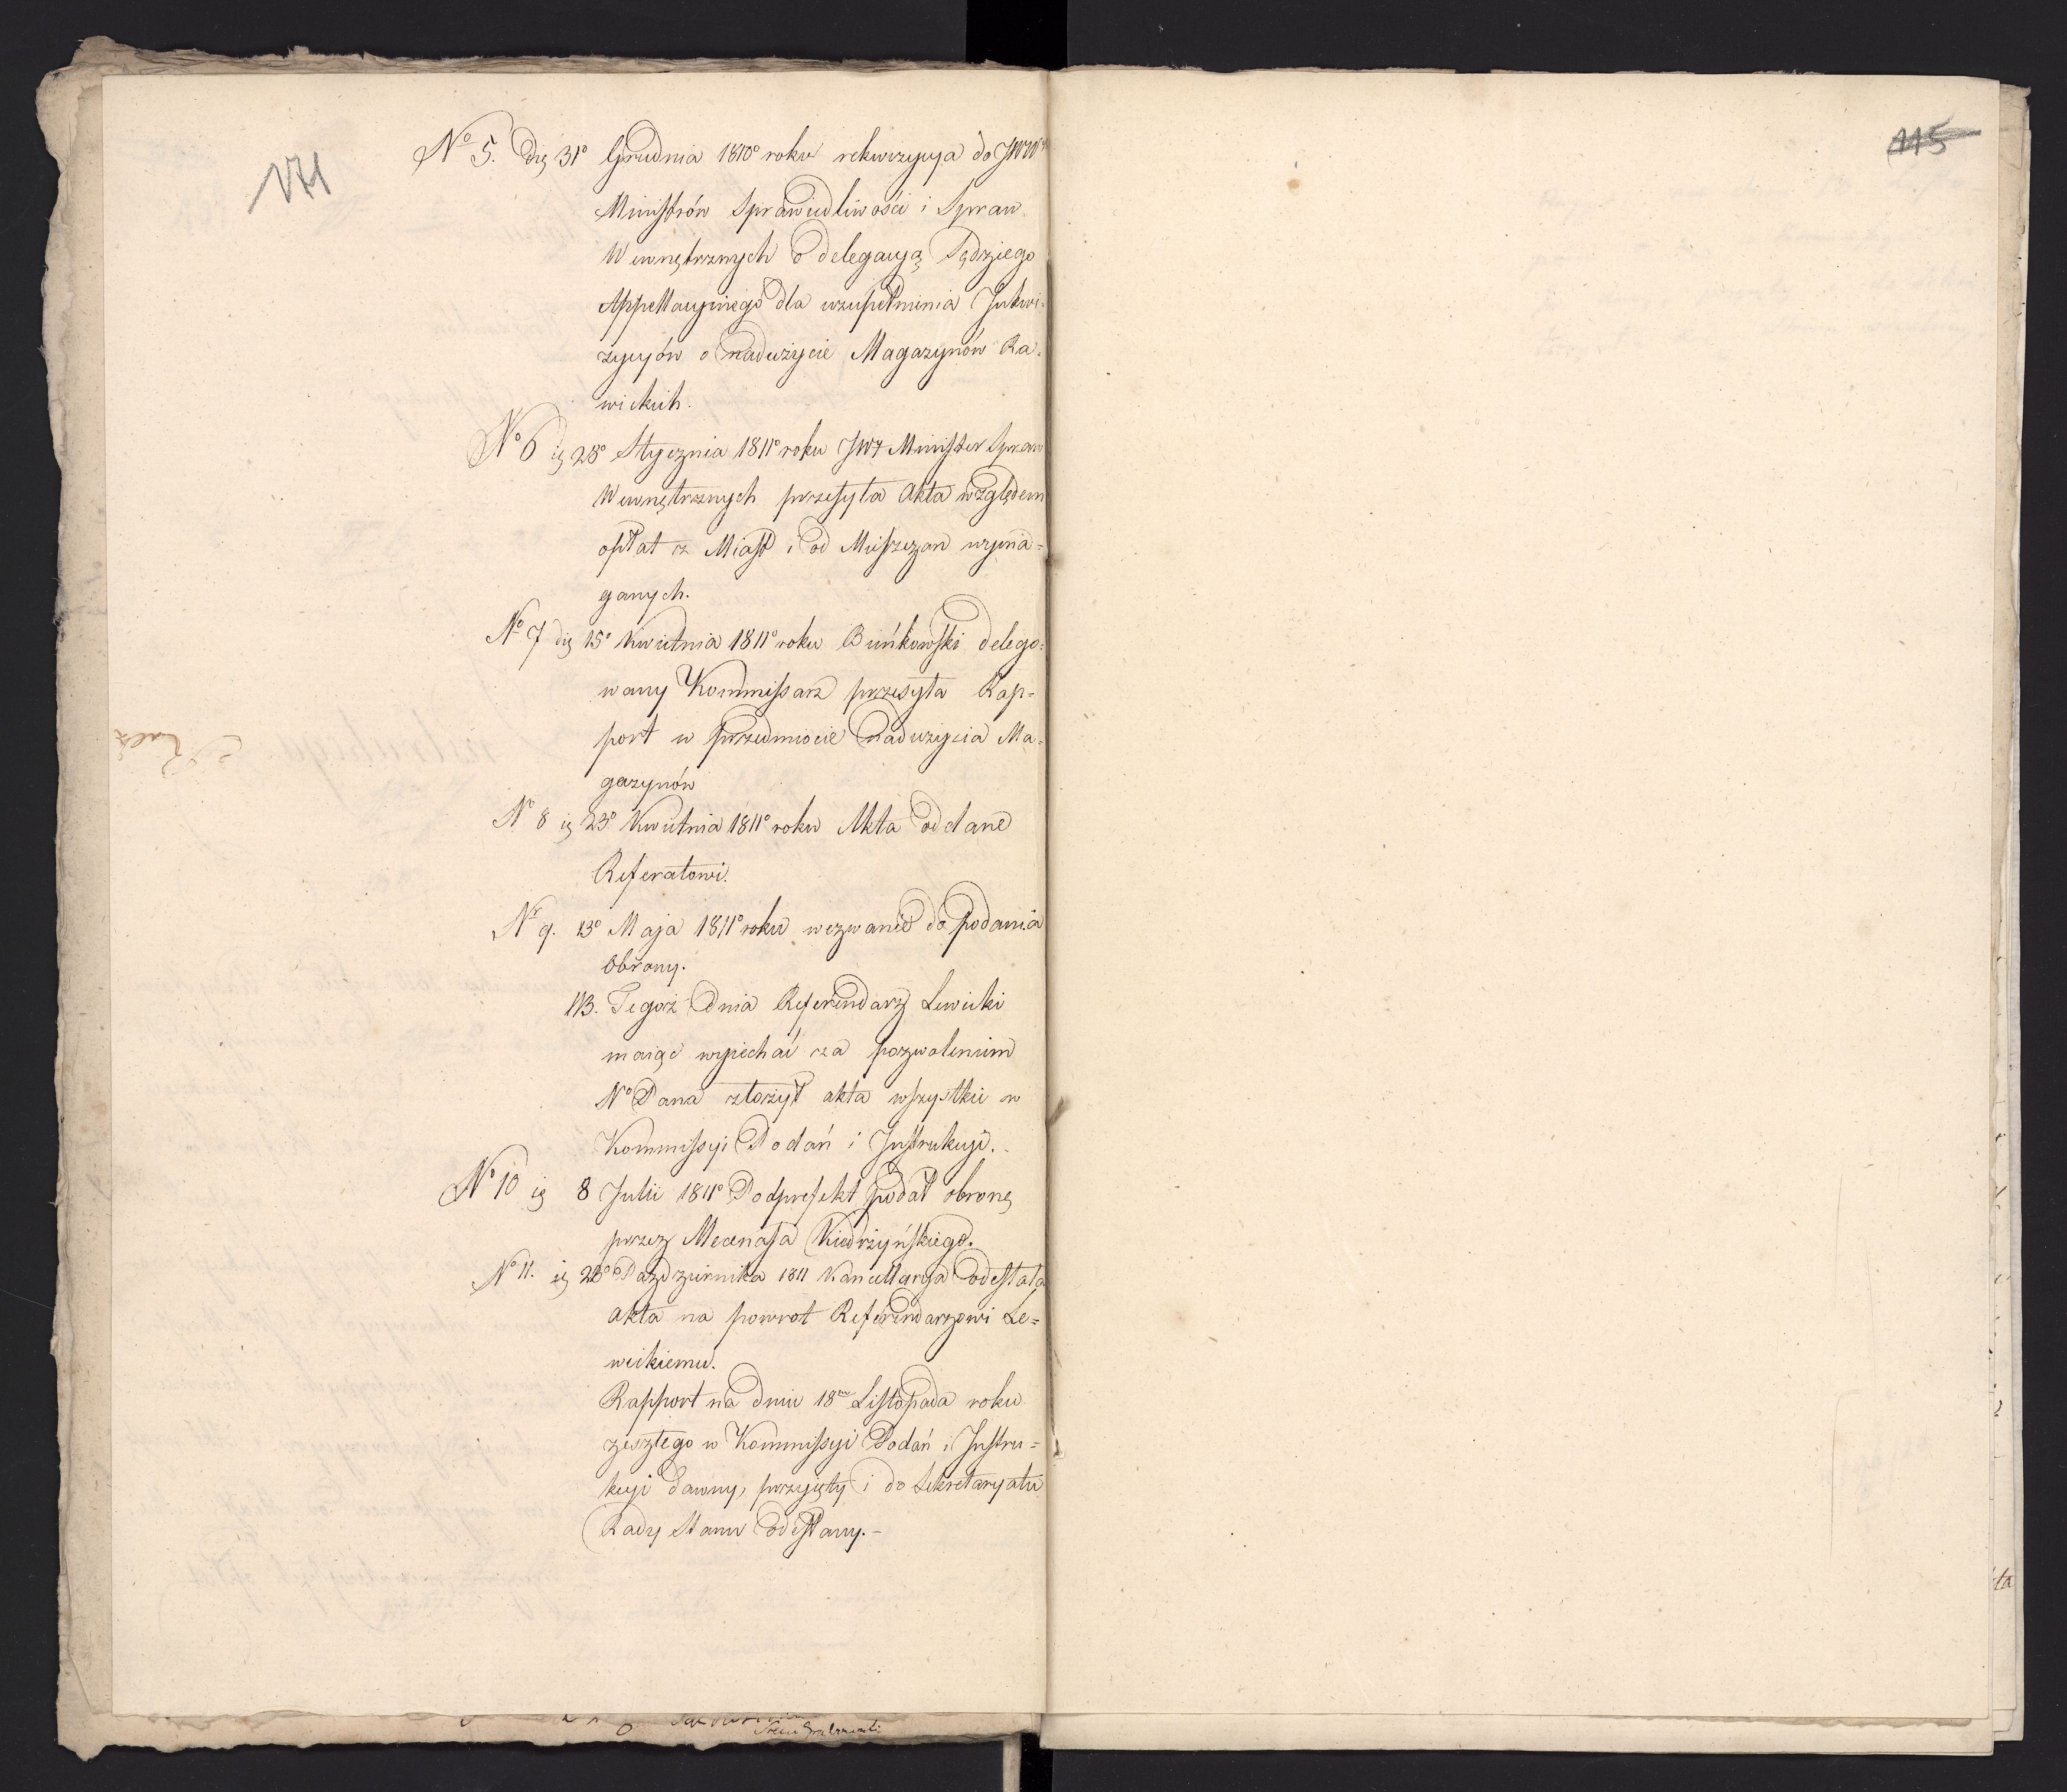 171
115
No 5. Dię 31o Grudnia 1810o roku rekwizycya do JWW
Ministrów Sprawiedliwości i Spraw
Wewnętrznych o delegacyą Sędziego
Appellacyinego dla uzupełnienia Inkwi-
zycyów o nadużycie Magazynów Ra-
wickich.
No 6 ię 28o Stycznia 1811o roku JW Minister Spraw
Wewnętrznych przesyła Akta względem
opłat z Miast i od Mieszczan wyma=
ganych.
No 7 dię 15o Kwietnia 1811o roku Bieńkowski delego=
wany Kommissarz przesyła Rap=
port w przedmiocie nadużycia Ma=
gazynów
No 8 ię 23o Kwietnia 1811o roku Akta oddane
Referatowi.
Nr 9. 13o Maja 1811o roku wezwanie do podania
Obrony.
NB. Tegoż Dnia Referendarz Lewicki
maiąc wyiechać za pozwoleniem
No Pana złożył akta wszystkie w
Kommissyi Podań i Instrukcyi.-
No 10 ię 8 Julii 1811o Podprefekt podał obronę
przez Mecenasa Kiedrzyńskiego.
No 11. ię 28o Pazdziernika 1811 Kancellarya odesłała
akta na powrot Referendarzowi Le=
wickiemu.
Rapport na dniu 18m Listopada roku
zeszłego w Kommissyi Podań i Instru=
kcyi dawny, przyięty i do Sekretaryatu
Rady Stanu odesłany.-
ta